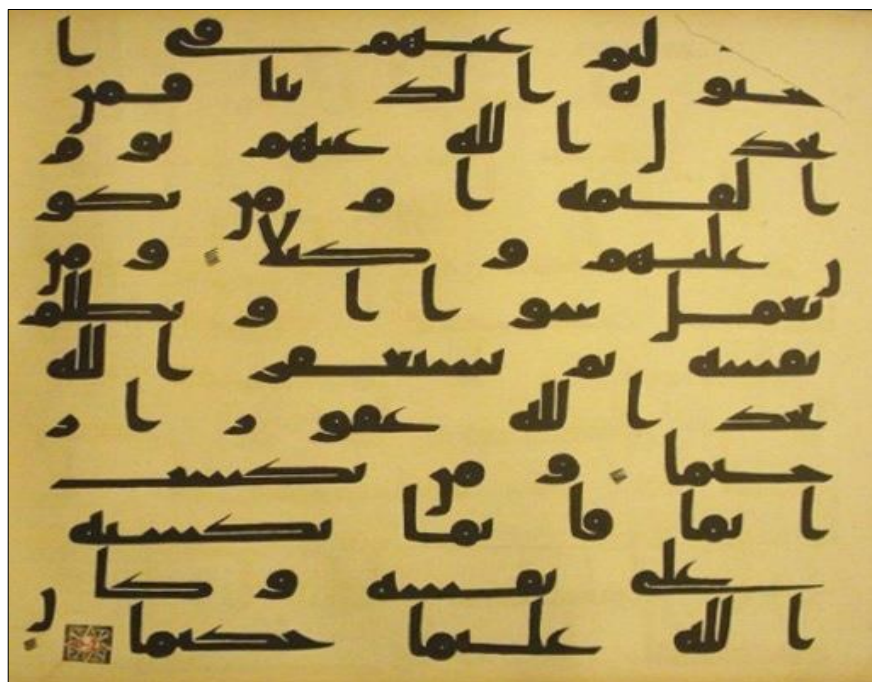 لتم عنهم في ا
لحيوة الدنيا فمن
يجدل الله عنهم يوم
القيمة ام من يكو
ن عليهم وكيلا ومن
يعمل سوا او يظلم
نفسه ثم يستغفر الله
يجد الله غفورا ر
حيما ومن يكسب
اثما فانما يكسبه
على نفسه وكان
الله عليما حكيما